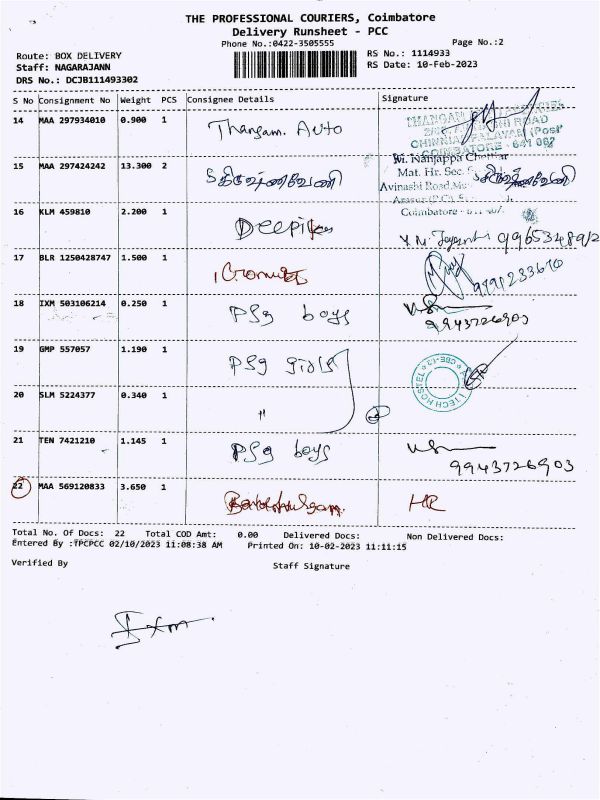 THE PROFESSIONAL COURIERS, Coimbatore
Delivery Runsheet - PCC
Phone No.:0422-3505555
Page No.:2
Route: BOX DELIVERY
RS No.: 1114933
Staff: NAGARAJANN
RS Date: 10-Feb-2023
DRS No.: DCJB111493302
S No Consignment No Weight PCS Consignee Details Signature
14 MAA 297934010 0.900 1 Thangam. Auto
15 MAA 297424242 13.300 2
Sri. Nanjappa
Mat. Hr. Sec.
Avinashi Road,
Coimbatore
16 KLM 459810 2.200 1 Deepika
17 BLR 1250428747 1.500 1
18 IXM 503106214 0.250 1 PSg boys
9943726903
19 GMP 557057 1.190 1 PSg girls
20 SLM 5224377 0.340 1 "
21 TEN 7421210 1.145 1 PSg boys
9943726903
22 MAA 569120833 3.650 1 HR
Total No. Of Docs: 22 Total COD Amt: 0.00 Delivered Docs: Non Delivered Docs:
Entered By :TPCPCC 02/10/2023 11:08:38 AM Printed On: 10-02-2023 11:11:15
Verified By Staff Signature